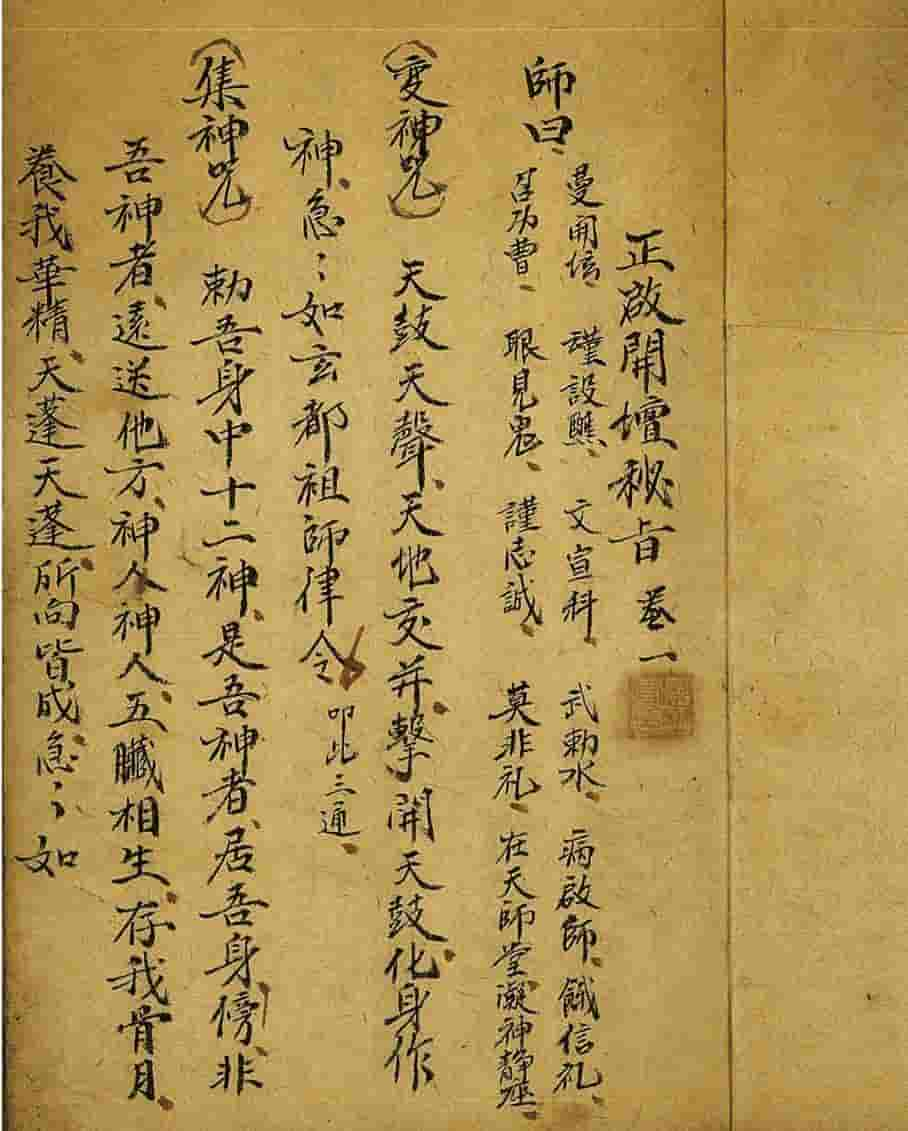 正啟開壇秘旨 卷一
師曰、
曼開信、謹設醮、文宣科、武勅水、病啟師、餓信礼、
召功曹、眼見鬼、謹志誠、莫非礼、在天師堂、凝神靜座、
（变神咒）天鼓天聲、天地交并、擊開天鼓、化身作
神、急〻如玄都祖師律令 叩此三通、
（集神咒）勅吾身中十二神、是吾神者、居吾身傍、非
吾神者、遠送他方、神人神人、五臟相生、存我骨月、
養我華精、天蓬天蓬、所向皆成、急〻如